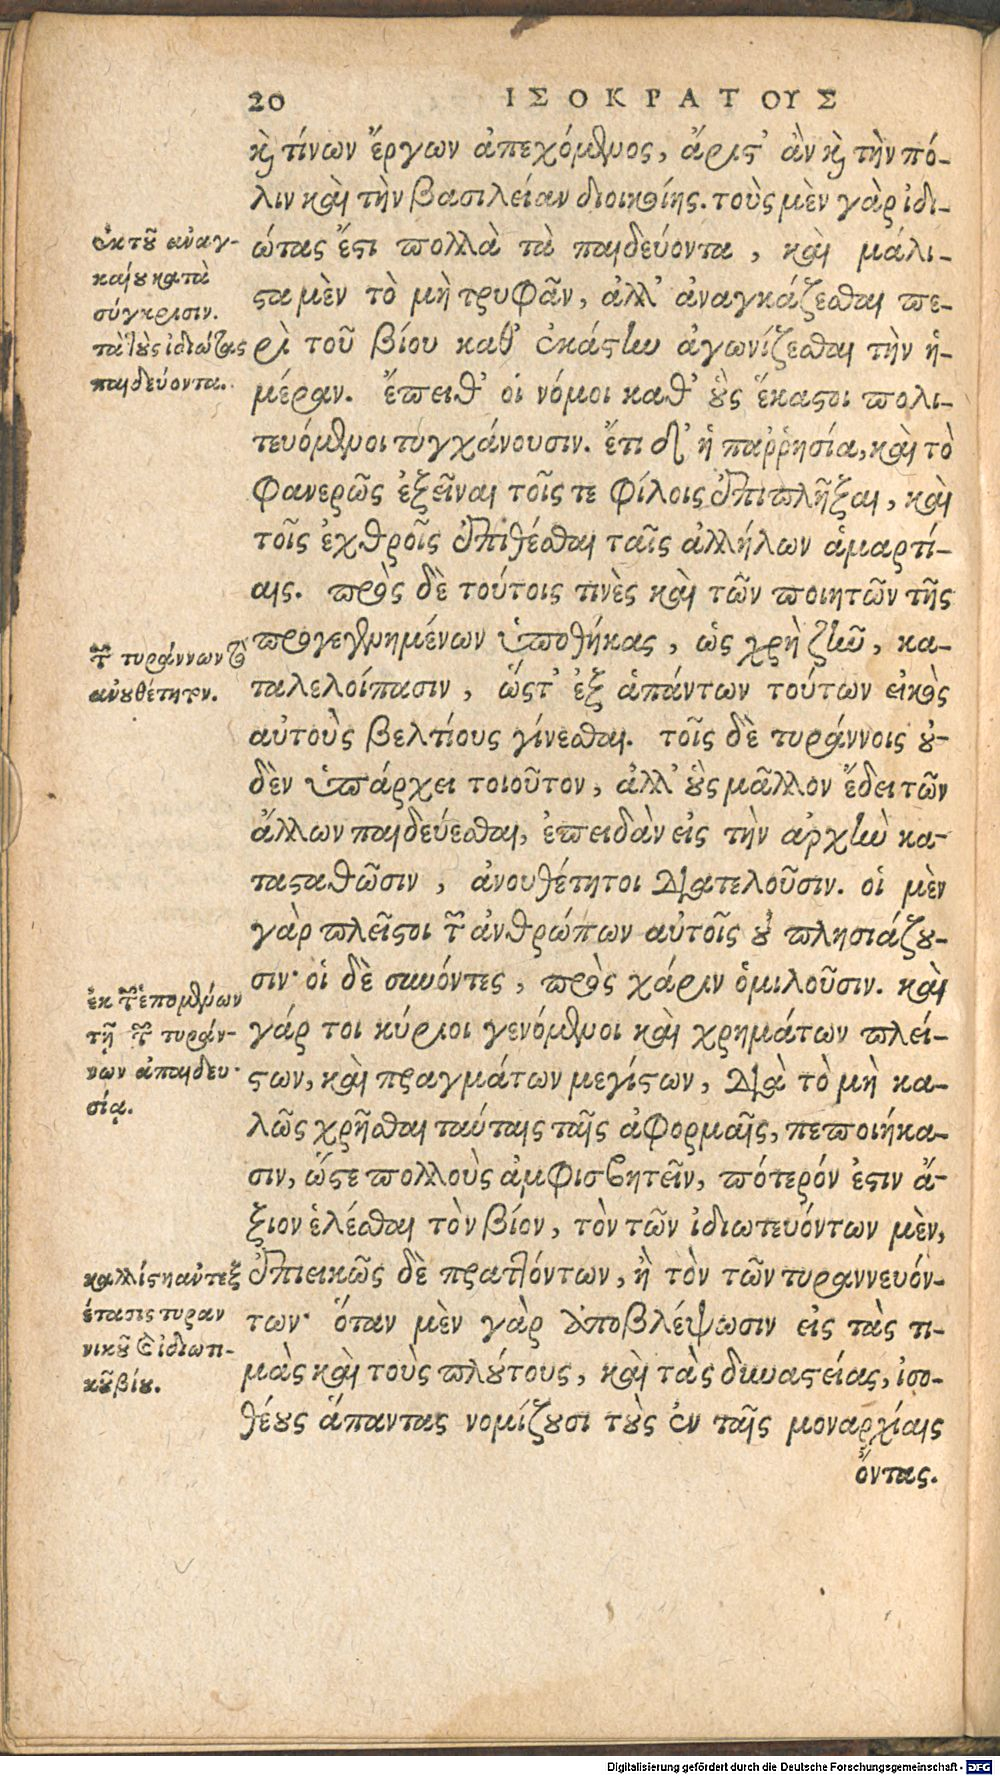 20 ΙΣΟΚΡΑΤΟΥΣ
καὶ τίνων ἔργων ἀπεχόμενος, ἄριστ' ἂν καὶ τὴν πό-
λιν καὶ τὴν βασιλείαν διοικοίης. τοὺς μὲν γὰρ ἰδι-
ώτας ἔστι πολλὰ τὰ παιδεύοντα, καὶ μάλι-
στα μὲν τὸ μὴ τρυφᾶν, ἀλλ' ἀναγκάζεσθαι πε-
ρὶ τοῦ βίου καθ' ἑκάστην ἀγωνίζεσθαι τὴν ἡ-
μέραν. ἔπειθ' οἱ νόμοι καθ' οὓς ἕκαστοι πολι-
τευόμενοι τυγχάνουσιν. ἔτι δ' ἡ παῤῥησία, καὶ τὸ
φανερῶς ἐξεῖναι τοῖς τε φίλοις ἐπιπλῆξαι, καὶ
τοῖς ἐχθροῖς ἐπιθέσθαι ταῖς ἀλλήλων ἁμαρτί-
αις. πρὸς δὲ τούτοις τινὲς καὶ τῶν ποιητῶν τῆς
προγεγενημένων ὑποθήκας, ὡς χρὴ ζῆν, κα-
ταλελοίπασιν, ὥστ' ἐξ ἁπάντων τούτων εἰκὸς
αὐτοὺς βελτίους γίνεσθαι. τοῖς δὲ τυράννοις οὐ-
δὲν ὑπάρχει τοιοῦτον, ἀλλ' οὓς μᾶλλον ἔδει τῶν
ἄλλων παιδεύεσθαι, ἐπειδὰν εἰς τὴν ἀρχὴν κα-
τασταθῶσιν, ἀνουθέτητοι διατελοῦσιν. οἱ μὲν
γὰρ πλεῖστοι τῶν ἀνθρώπων αὐτοῖς οὐ πλησιάζου-
σιν· οἱ δὲ συνόντες, πρὸς χάριν ὁμιλοῦσιν. καὶ
γάρ τοι κύριοι γενόμενοι καὶ χρημάτων πλεί-
στων, καὶ πραγμάτων μεγίστων, διὰ τὸ μὴ κα-
λῶς χρῆσθαι ταύταις ταῖς ἀφορμαῖς, πεποιήκα-
σιν, ὥστε πολλοὺς ἀμφισβητεῖν, πότερόν ἐστιν ἄ-
ξιον ἑλέσθαι τὸν βίον, τὸν τῶν ἰδιωτευόντων μὲν,
ἐπιεικῶς δὲ πραττόντων, ἢ τὸν τῶν τυραννευόν-
των· ὅταν μὲν γὰρ ἀποβλέψωσιν εἰς τὰς τι-
μὰς καὶ τοὺς πλούτους, καὶ τὰς δυναστείας, ἰσο-
θέους ἅπαντας νομίζουσι τοὺς ἐν ταῖς μοναρχίαις
ὄντας.
ἐκ τοῦ ἀναγ-
καίου κατὰ
σύγκρισιν.
τὰ τοὺς ἰδιώτας
παιδεύοντα.
τῶν τυράννων τὸ
ἀνουθέτητον.
ἐκ τῶν ἑπομένων
τῇ τῶν τυράν-
νων ἀπαιδευ-
σίᾳ.
καλλίστη ἀντεξ
έτασις τυραν
νικοῦ καὶ ἰδιωτι-
κοῦ βίου.
Digitalisierung gefördert durch die Deutsche Forschungsgemeinschaft - DFG